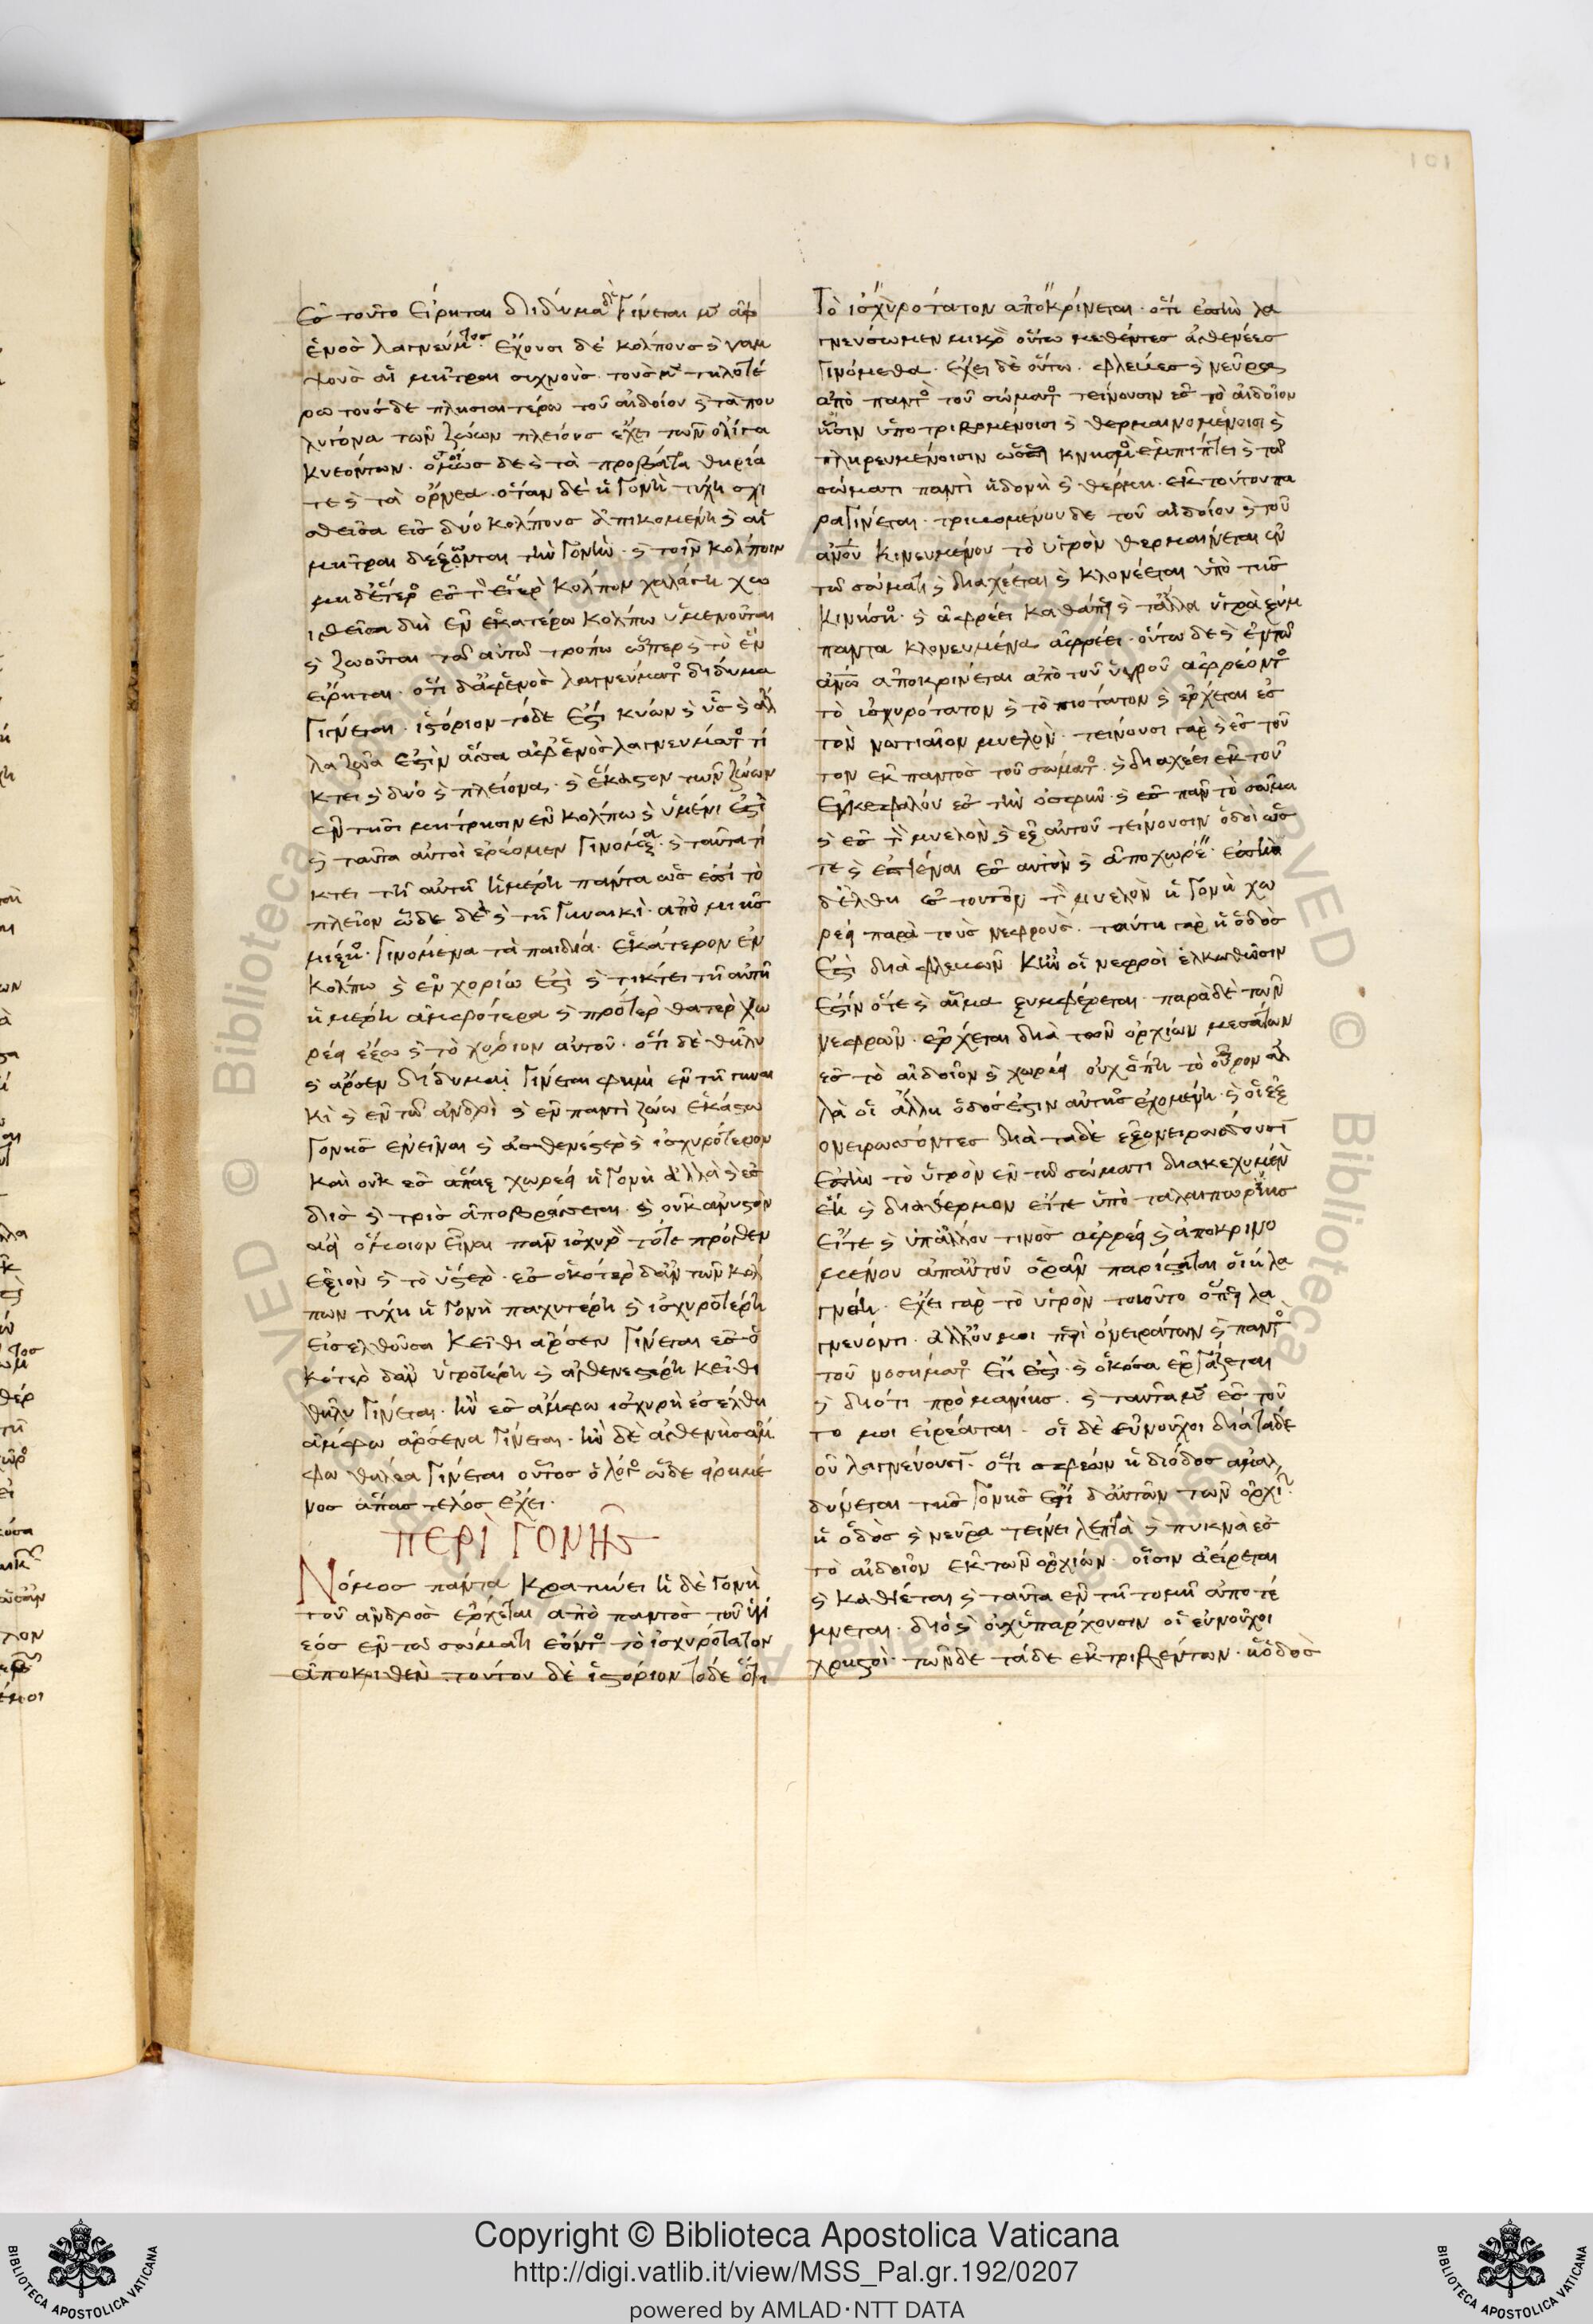 101
ἐς τοῦτο εἴρηται δίδυμα δὲ γίνεται μὲν ἀφ
ἑνὸς λαγνεύματος. ἔχουσι δὲ κόλπους καὶ γαμ
ψοὺς αἱ μῆτραι συχνοὺς. τοὺς μὲν τηλοτέ
ρω τοὺς δὲ πλησιαιτέρω τοῦ αἰδοίου καὶ τὰ πον
λυγόνα τῶν ζώων πλείους ἔχει τῶν ὀλίγα
κυεόντων. ὁμοίως δὲ καὶ τὰ πρόβατα θηρία
τε καὶ τὰ ὄρνεα. ὅταν δὲ ἡ γονὴ τύχῃ σχι
σθεῖσα εἰς δύο κόλπους ἀπικομένη καὶ αἱ
μῆτραι δέξονται τὴν γονὴν. καὶ τοῖν κόλποιν
μηδέτερος ἐς τὸν ἕτερον κόλπον χαλάσῃ χω
ισθεῖσα δὴ ἐν ἑκατέρω κόλπω ὑμενοῦται
καὶ ζωοῦται τῶ αὐτῶ τρόπω ὥπερ καὶ τὸ ἓν
εἴρηται. ὅτι δ' ἀφ' ἑνὸς λαγνεύματος δίδυμα
γίγνεται. ἱστόριον τόδε ἐστὶ κύων καὶ ὗς καὶ ἄλ
λα ζῶα ἐστὶν ἅσσα ἀφ' ἑνὸς λαγνεύματος τί
κτει καὶ δύο καὶ πλείονας. καὶ ἕκαστον τῶν ζώων
ἐν τῆσι μήτρησιν ἐν κόλπω καὶ ὑμένι ἐστὶ
καὶ ταῦτα αὐτοὶ ὁρέομεν γινόμενα. καὶ ταῦτα τί
κτει τῆ αὐτῆ ἡμέρη πάντα ὡς ἐπὶ τὸ
πλεῖον ὧδε δὲ καὶ τῆ γυναικὶ. ἀπὸ μιῆς
μίξιος. γινόμενα τὰ παιδία. ἑκάτερον ἐν
κόλπω καὶ ἐν χορίω ἐστὶ καὶ τίκτει τῆ αὐτῆ
ἡμέρη ἀμφότερα καὶ πρότερον θάτερον χω
ρέει ἔξω καὶ τὸ χόριον αὐτοῦ. ὅτι δὲ θῆλυ
καὶ ἄρσεν δίδυμα γίνεται φημὶ ἐν τῆ γυναι
κὶ καὶ ἐν τῶ ἀνδρὶ καὶ ἐν παντὶ ζώω ἑκάστω
γονῆς ἐνεῖναι καὶ ἀσθενέστερον καὶ ἰσχυρότερον
καὶ οὐκ ἐς ἅπαξ χωρέει ἡ γονὴ ἀλλὰ καὶ ἐς
δὶς καὶ τρὶς ἀποβράσσεται. καὶ οὐκ ἀνυστὸν
αἰεὶ ὅμοιον εἶναι πᾶν ἰσχυρὸν τό τε πρόσθεν
ἐξιὸν καὶ τὸ ὕστερον. ἐς ὁκότερον δ' ἂν τῶν κόλ
πων τύχη ἡ γονὴ παχυτέρη καὶ ἰσχυροτέρη
εἰσελθοῦσα κεῖθι ἄρσεν γίνεται ἐς ὁ
κότερον δ' ἂν ὑγροτέρη καὶ ἀσθενεστέρη κεῖθι
θῆλυ γίνεται. ἢν ἐς ἄμφω ἰσχυρὴ ἐσέλθη
ἄμφω ἄρσενα γίνεται. ἢν δὲ ἀσθενὴς ἄμ
φω θήλεα γίνεται οὗτος ὁ λόγος ὧδε εἰρημέ
νος ἅπας τέλος ἔχει.
ΠΕΡῚ ΓΟΝΗ͂Σ
Νόμος πάντα κρατύνει ἡ δὲ γονὴ
τοῦ ἀνδρὸς ἔρχεται ἀπὸ παντὸς τοῦ ὑγ
ροῦ ἐν τῶ σώματι ἐόντος τὸ ἰσχυρότατον
ἀποκριθὲν τούτου δὲ ἱστόριον τόδε ὅτι
Τὸ ἰσχυρότατον ἀποκρίνεται. ὅτι ἐπὴν λα
γνεύσωμεν μικρὸν οὕτω μεθέντες ἀσθενέες
γινόμεθα. ἔχει δὲ οὕτω. φλέβες καὶ νεῦρα
ἀπὸ παντὸς τοῦ σώματος τείνουσιν ἐς τὸ αἰδοῖον
οἷσιν ὑποτριβομένοισι καὶ θερμαινομένοισι καὶ
πληρευμένοισιν ὥσπερ κνησμὸς ἐμπίπτει καὶ τῶ
σώματι παντὶ ἡδονὴ καὶ θέρμη. ἐκ τούτου πα
ραγίνεται. τριβομένου δὲ τοῦ αἰδοίου καὶ τοῦ
ἀνου κινευμένου τὸ ὑγρὸν θερμαίνεται ἐν
τῶ σώματι καὶ διαχέεται καὶ κλονέεται ὑπὸ τῆς
κινήσιος. καὶ ἀφρέει καθάπερ καὶ τἄλλα ὑγρὰ ξύμ
παντα κλονευμένα ἀφρέει. οὕτω δὲ καὶ ἐν τῶ
ἀνω ἀποκρίνεται ἀπὸ τοῦ ὑγροῦ ἀφρέοντος
τὸ ἰσχυρότατον καὶ τὸ πιότατον καὶ ἔρχεται ἐς
τὸν νωτιαῖον μυελὸν. τείνουσι γὰρ καὶ ἐς τοῦ
τον ἐκ παντὸς τοῦ σώματος. καὶ διαχέει ἐκ τοῦ
ἐγκεφάλου ἐς τὴν ὀσφῦν. καὶ ἐς πᾶν τὸ σῶμα
καὶ ἐς τὸν μυελὸν καὶ ἐξ αὐτοῦ τείνουσιν ὁδοὶ ὥς
τε καὶ ἐσιέναι ἐς αὐτὸν καὶ ἀποχωρέειν. ἐπὴν
δ' ἔλθη ἐς τοῦτον τὸν μυελὸν ἡ γονὴ χω
ρέει παρὰ τοὺς νεφροὺς. ταύτη γὰρ ἡ ὁδὸς
ἐστὶ διὰ φλεβῶν κἢν οἱ νεφροὶ ἑλκωθῶσιν
ἔστιν ὅτε καὶ αἷμα ξυμφέρεται. παρὰ δὲ τῶν
νεφρῶν. ἔρχεται διὰ τῶν ὀρχίων μεσάτων
ἐς τὸ αἰδοῖον καὶ χωρέει οὐχ ὅπη τὸ οὖρον ἀλ
λὰ οἱ ἄλλη ὁδός ἐστιν αὐτῆς ἐχομένη. καὶ οἱ ἐξ
ονειρώσσοντες διὰ τάδε ἐξονειρώσσουσι
ἐπὴν τὸ ὑγρὸν ἐν τῶ σώματι διακεχυμένον
ἔη καὶ διάθερμον εἴτε ὑπὸ ταλαιπωρίης
εἴτε καὶ ὑπ' ἄλλου τινὸς ἀφρέει καὶ ἀποκρινο
μένου ἀπ' αὐτοῦ ὁρᾶν παρίσταται οἷη λα
γνείη. ἔχει γὰρ τὸ ὑγρὸν τοιοῦτο ὅπερ λα
γνεύοντι. ἀλλ' οὔ μοι περὶ ὀνειράτων καὶ παντὸς
τοῦ νοσήματος ἔτι ἐστὶ. καὶ ὁκόσα ἐργάζεται
καὶ διότι πρὸ μανίης. καὶ ταῦτα μὲν ἐς τοῦ
το μοι εἰρέαται. οἱ δὲ εὐνοῦχοι διὰ τάδε
οὐ λαγνεύουσι. ὅτι σφέων ἡ δίοδος ἀμαλ
δύνεται τῆς γονῆς ἔστι δ' αὐτῶν τῶν ὀρχίων
ἡ ὁδὸς καὶ νεῦρα τείνει λεπτὰ καὶ πυκνὰ ἐς
τὸ αἰδοῖον ἐκ τῶν ὀρχίων. οἷσιν ἀείρεται
καὶ καθίεται καὶ ταῦτα ἐν τῆ τομῆ ἀποτέ
μνεται. διὸ καὶ οὐχ ὑπάρχουσιν οἱ εὐνοῦχοι
χρηστοὶ. τῶνδε τάδε ἐκτριβέντων. ἡ ὁδὸς
Copyright © Biblioteca Apostolica Vaticana
http://digi.vatlib.it/view/MSS_Pal.gr.192/0207
powered by AMLAD·NTT DATA